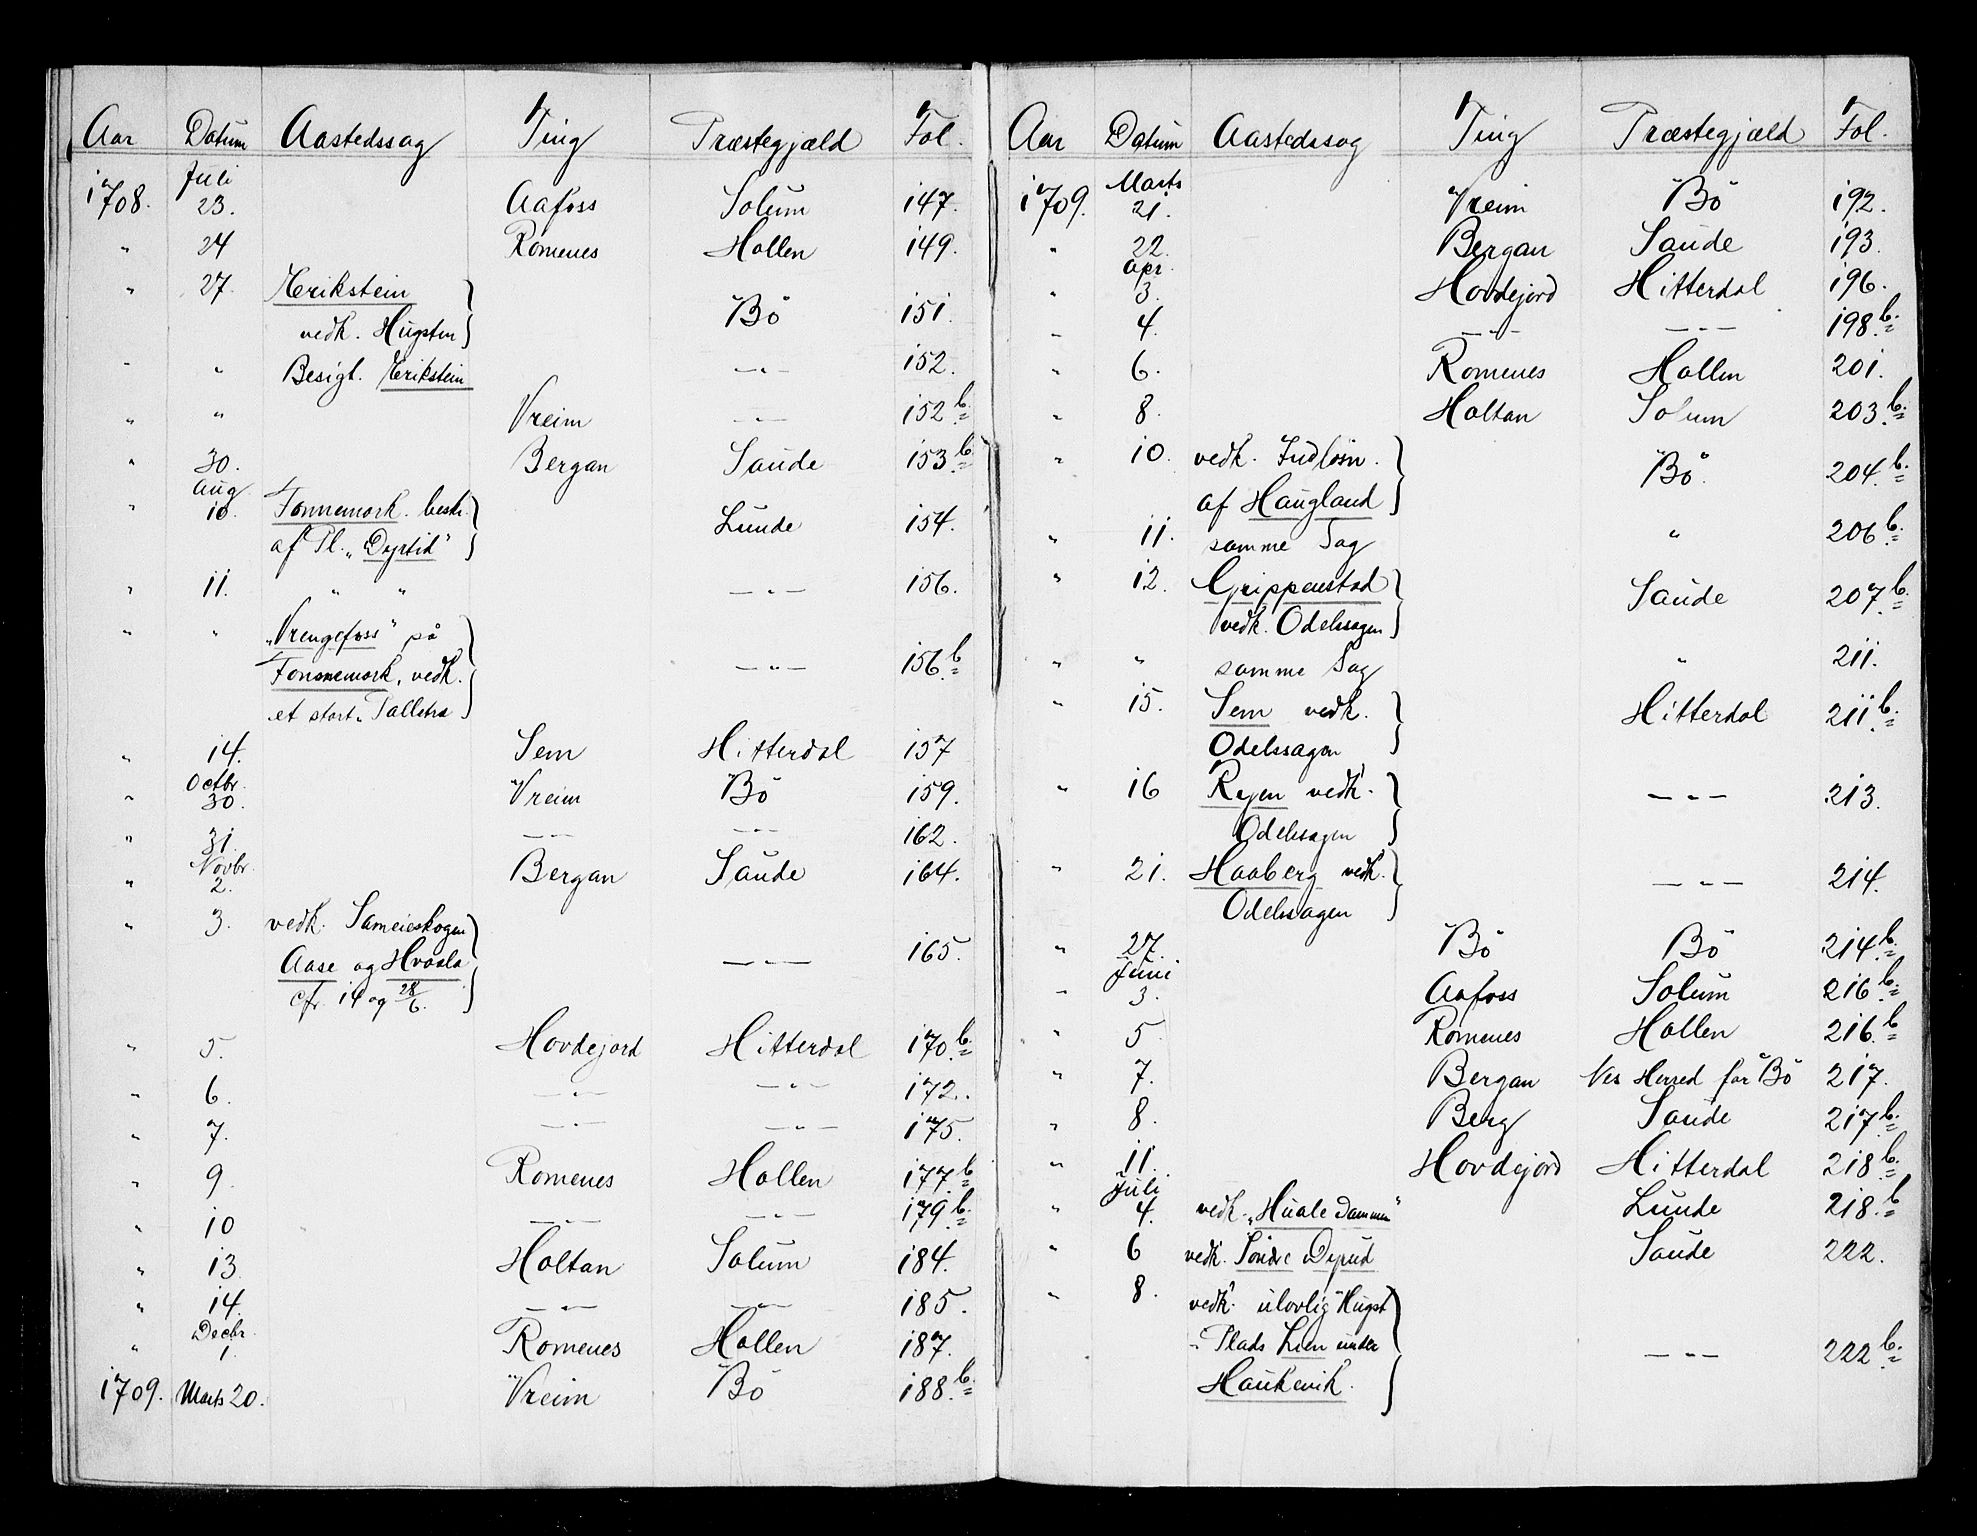 Aar Datum Aastedssag Ting Præstegjæld Fol.
Juli
1708. 23. Aafoss Solum 147.
" 24 Romenes Hollen 149.
" 27. Erikstein
vedk. Hugsten Bö 151.
" " Besigt. Erikstein — " — 152.
" " Vreim — " — 152 b.
" 30. Bergan Saude 153 b.
Aug
" 10. Fonnemork. beskr. Lunde 154.
af Pl. „Dyrtid"
" 11. " " — " — 156.
" " „Vrengefoss" på
Fonnemork, vedk. — " — 156 b
et stort
" 14. Sem Hitterdal 157
Octbr.
" 30. Vreim Bö 159.
" 31. — " — — " — 162.
Novbr.
" 2. Bergan Saude 164.
" 3. vedk. Sameieskogen
Aase og Hvaala — " — 165.
cfr. 14 og 28/6.
" 5. Hovdejord Hitterdal 170 b.
" 6. — " — — " — 172.
" 7. — " — — " — 175.
" 9. Romenes Hollen 177 b
" 10 — " — — " — 179 b.
" 13. Holtan Solum 184.
" 14. — " — — " — 185.
Decbr.
" 1. Romenes Hollen 187.
1709. Marts 20. Vreim Bö 188 b.
Aar Datum Aastedssag Ting Præstegjæld Fol.
Marts
1709. 21. Vreim Bö 192.
" 22. Bergan Saude 193.
Apr.
" 3. Hovdejord Hitterdal 196.
" 4. — " — — " — 198 b.
" 6. Romenes Hollen 201.
" 8. Holtan Solum 203 b.
" 10. vedk. Indlösn. Bö 204 b.
af Haugland
" 11. samme Sag " 206 b.
" 12. Grippenstad Saude 207 b.
vedk. Odelssagen
" " samme Sag " 211.
" 15. Sem vedk. Hitterdal 211 b.
Odelssagen
" 16 Rejen vedk. — " — 213.
Odelssagen
" 21. Haaberg vedk. — " — 214.
Odelssagen
" 27. Bö Bö 214 b.
Juni
" 3. Aafoss Solum 216 b.
" 5 Romenes Hollen 216 b
" 7. Bergan Nes Herred för Bö 217.
" 8. Berg Saude 217 b.
" 11. Hovdejord Hitterdal 218 b.
Juli
" 4. vedk. „Huale Dammen" Lunde 218 b
" 6 vedk. Söndre Dyrud Saude 222.
" 8. vedk. ulovlig Hugst
i Plads Lien under — " — 222 b.
Haukevik.